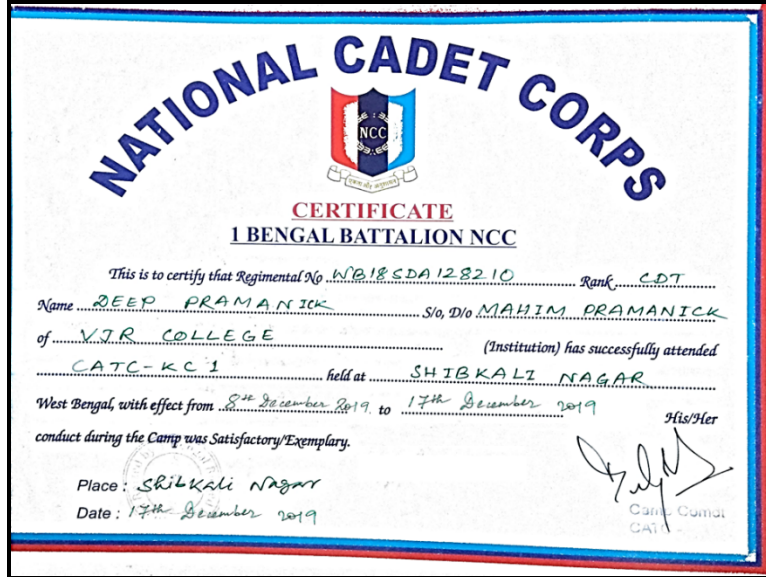 NATIONAL CADET CORPS
NCC
एकता और अनुशासन
CERTIFICATE
1 BENGAL BATTALION NCC
This is to certify that Regimental No WB18SDA128210 Rank CDT
Name DEEP PRAMANICK S/o, D/o MAHIM PRAMANICK
of VJR COLLEGE (Institution) has successfully attended
CATC-KC 1 held at SHIBKALI NAGAR
West Bengal, with effect from 8th December 2019 to 17th December 2019 His/Her
conduct during the Camp was Satisfactory/Exemplary.
Place: Shibkali Nagar
Date: 17th December 2019
Camp Comdt
CATC